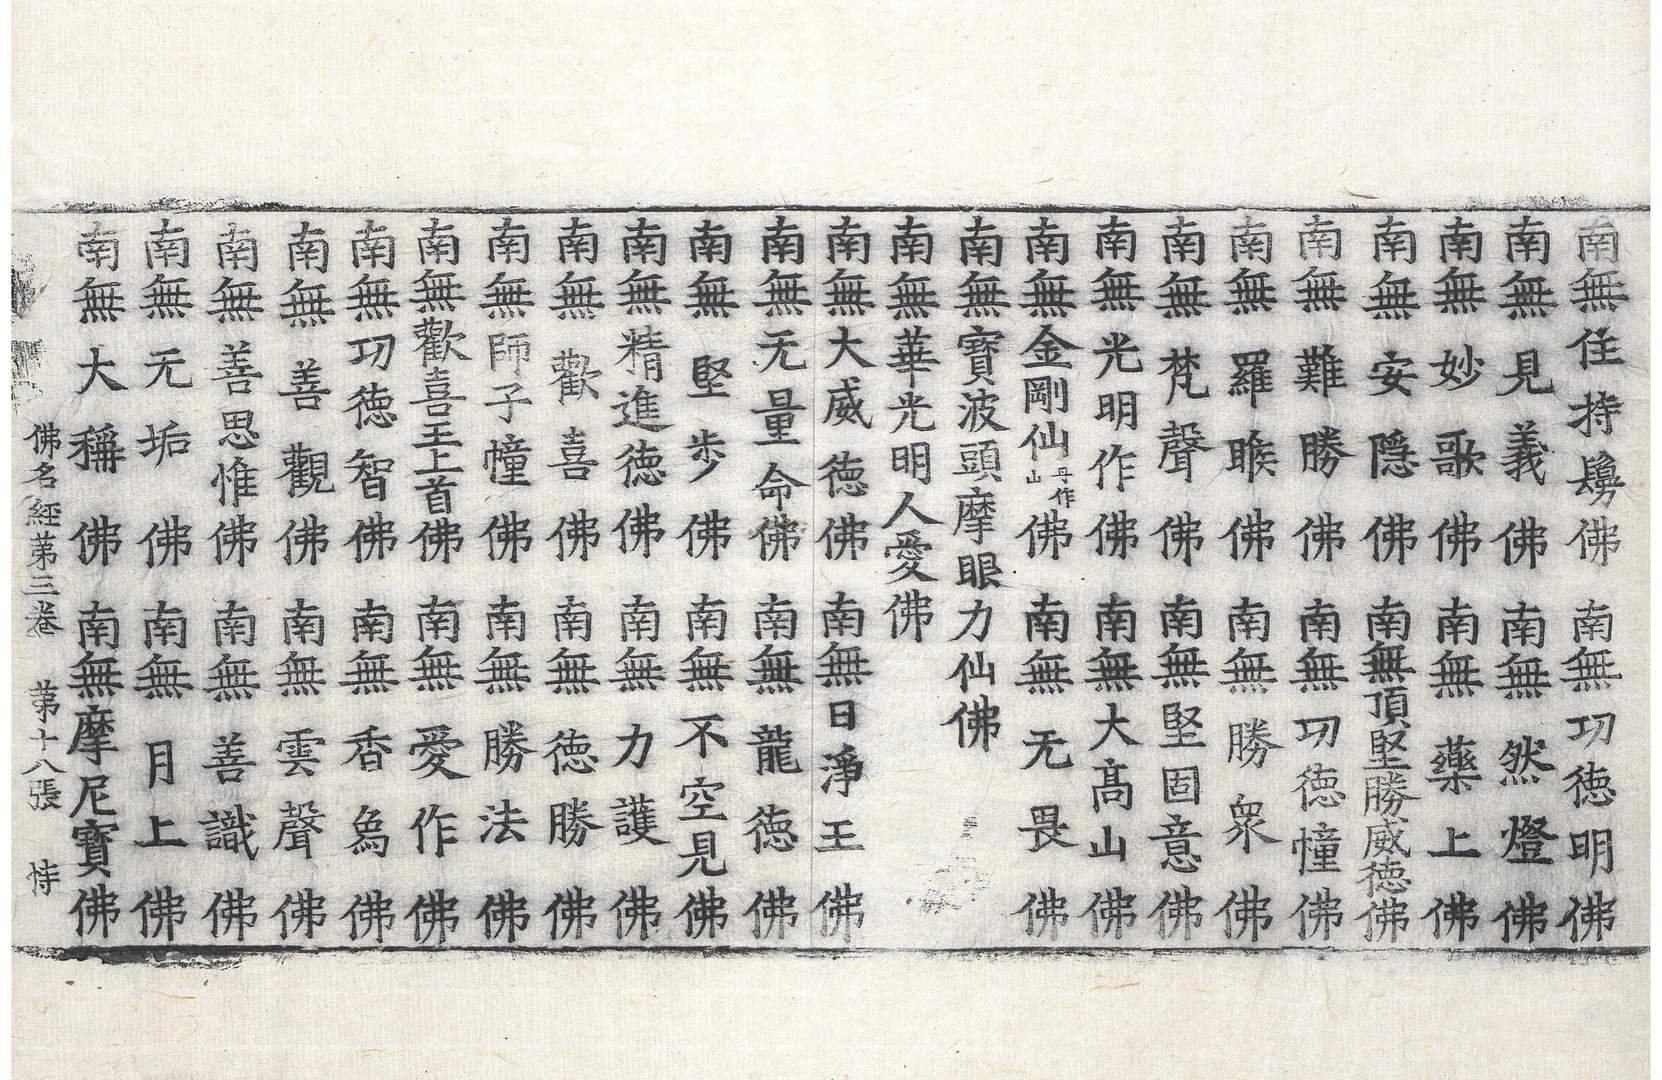 南無住持𩯭佛 南無功德明佛
南無見義佛 南無然燈佛
南無妙歌佛 南無藥上佛
南無安隱佛 南無頂堅勝威德佛
南無難勝佛 南無功德幢佛
南無羅睺佛 南無勝衆佛
南無梵聲佛 南無堅固意佛
南無光明作佛 南無大高山佛
南無金剛仙丹作山佛 南無无畏佛
南無寶波頭摩眼力仙佛
南無華光明人愛佛
南無大威德佛 南無日淨王佛
南無无量命佛 南無龍德佛
南無堅步佛 南無不空見佛
南無精進德佛 南無力護佛
南無歡喜佛 南無德勝佛
南無師子幢佛 南無勝法佛
南無歡喜王上首佛 南無愛作佛
南無功德智佛 南無香烏佛
南無善觀佛 南無雲聲佛
南無善思惟佛 南無善識佛
南無无垢佛 南無月上佛
南無大稱佛 南無摩尼寶佛
佛名經苐三卷 苐十八張